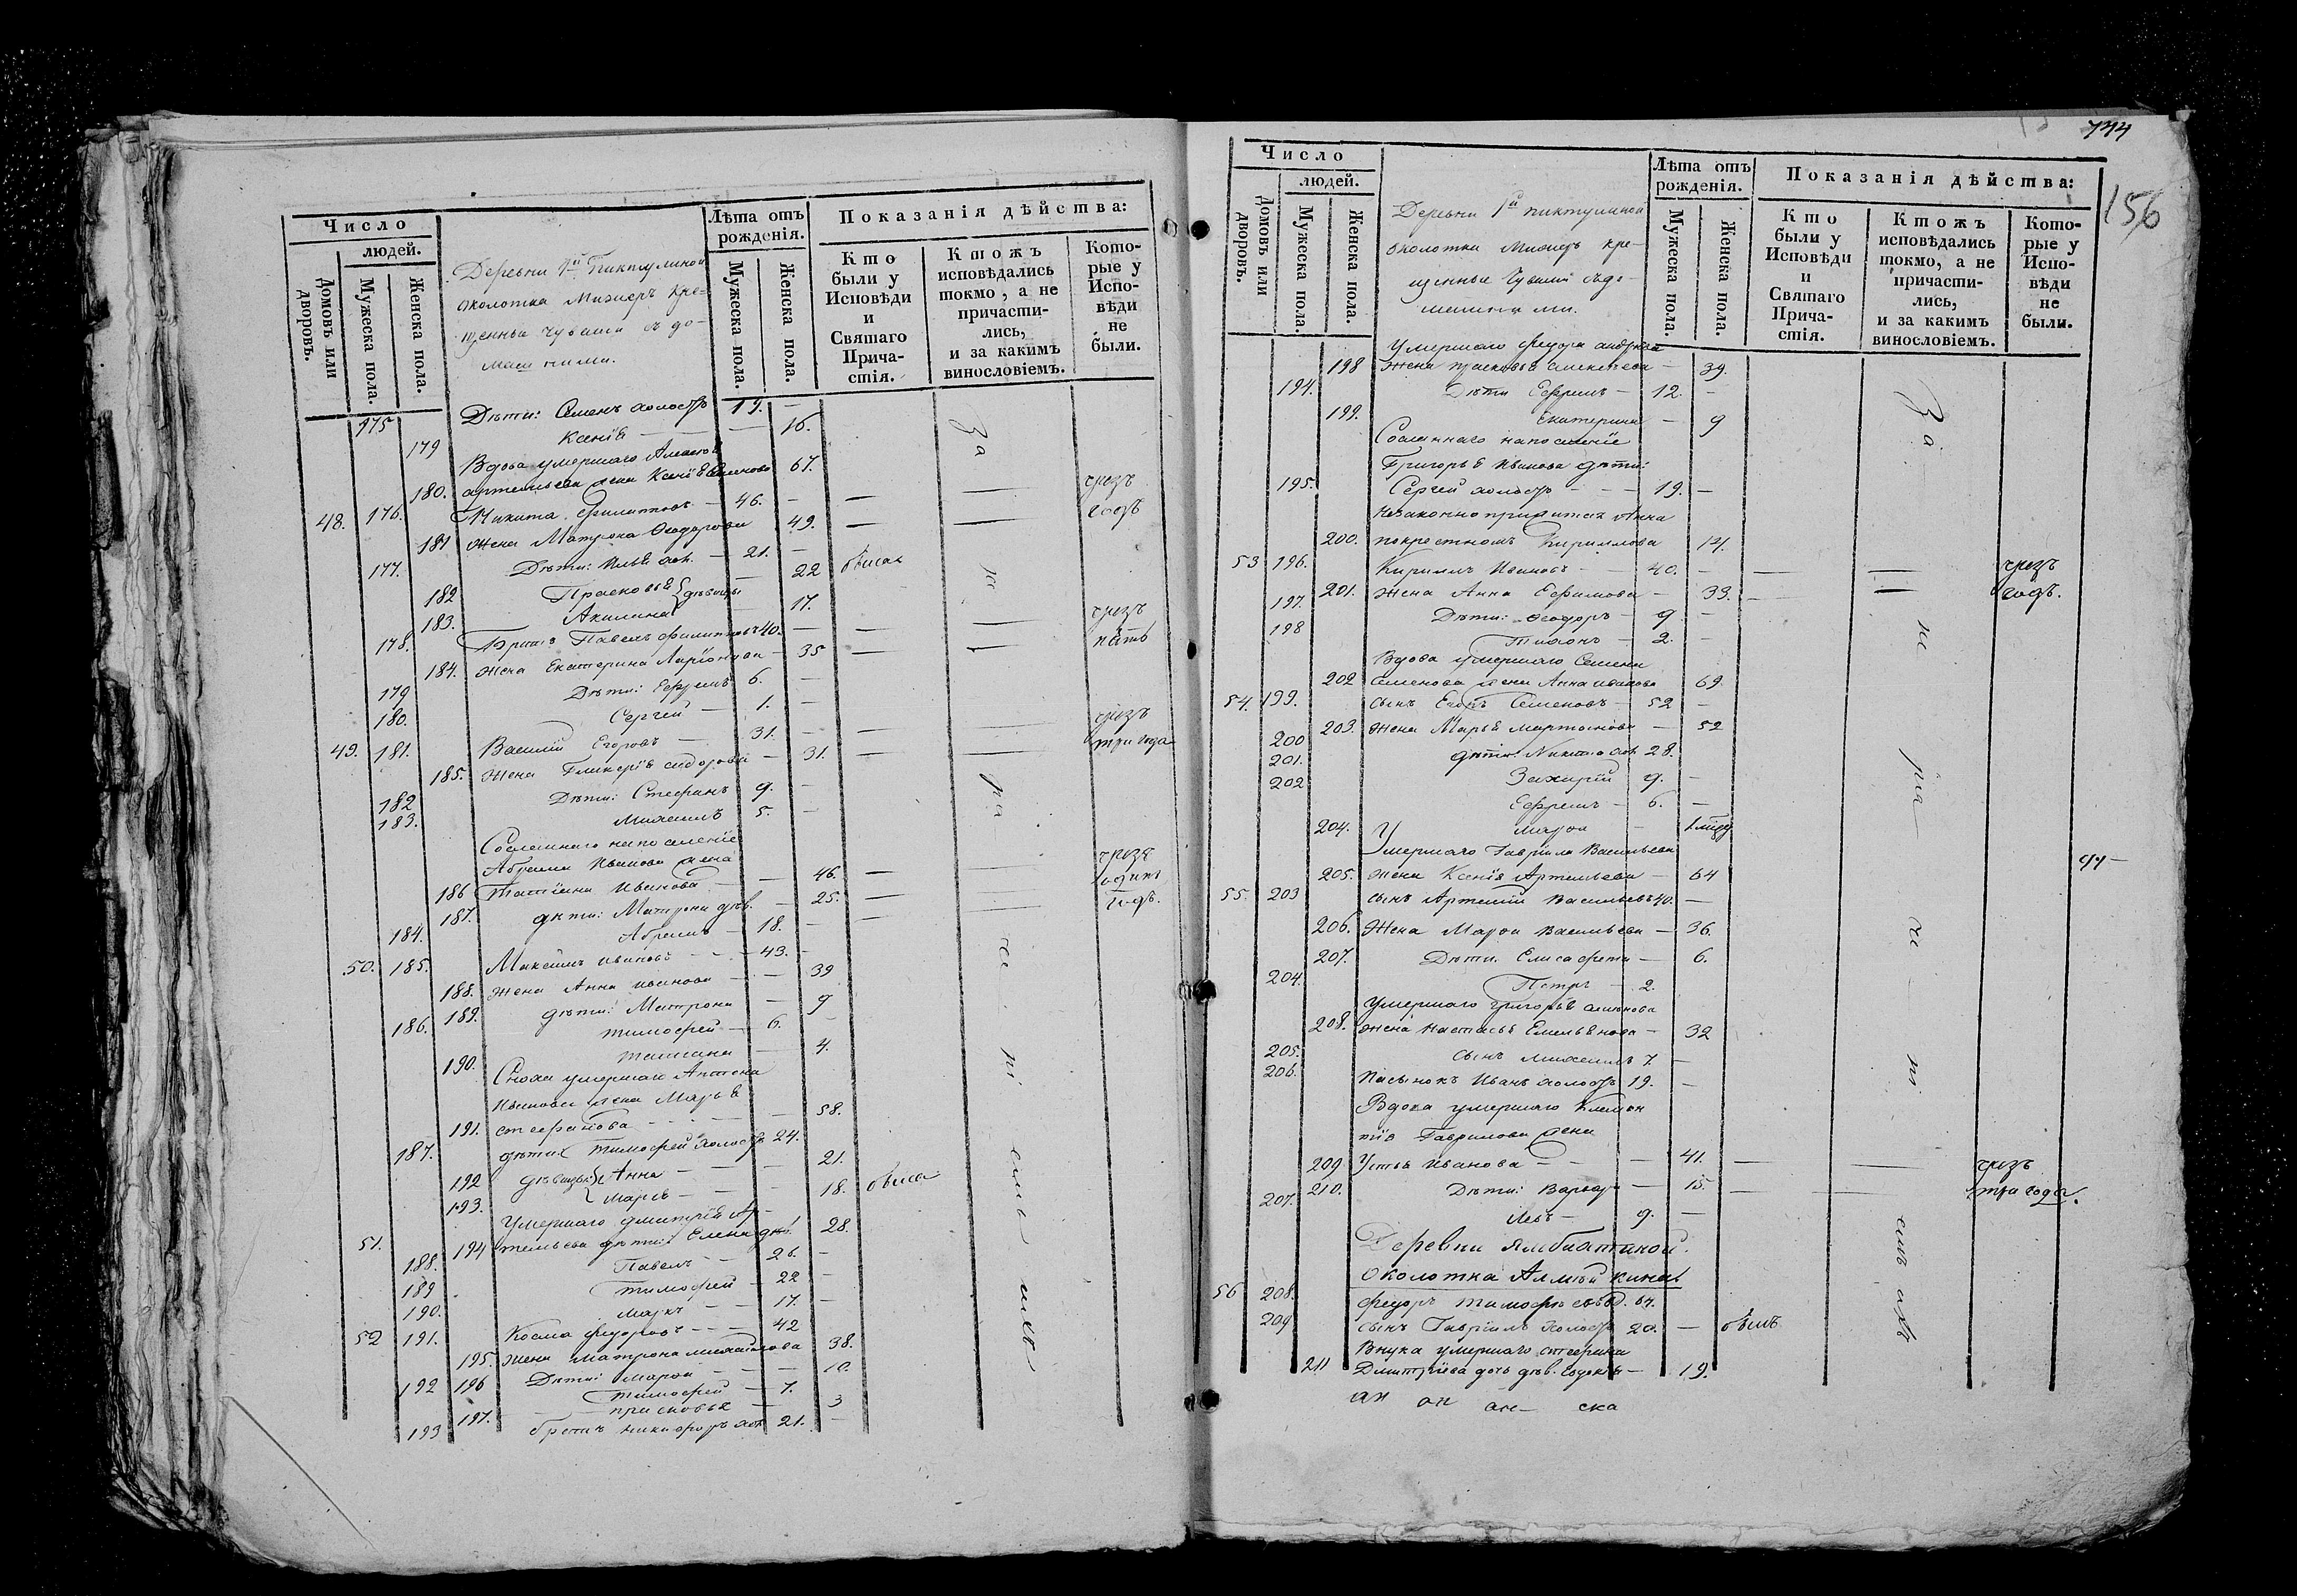 Число
людей.
Домовъ или дворовъ.
Мужеска пола.
Женска пола.
Деревни 1й Пиктулиной
околотка Мижеръ кре-
щенныя чуваши съ до-
машними.
Лѣта отъ
рожденія.
Мужеска пола.
Женска пола.
Показанія дѣйства:
Кто
были у
Исповѣди
и
Святаго
Прича-
стія.
Ктожъ
исповѣдались
токмо, а не
причасти-
лись,
и за какимъ
винословіемъ.
Кото-
рые у
Испо-
вѣди
не
были.
175 Дѣти: Семенъ холостъ 19. —
179 Ксенія — — 16.
Вдова умершаго
180. артемьева жена Ксенія 67.
48. 176. Никита Филиповъ — 46. — — — чрезъ
181 Жена Матрона Ѳеодорова 49. — — годъ
177. Дѣти: Илья хол. — 21. —
182 Прасковья дѣвицы — 22
183. Акилина — 17.
178. Братъ Павелъ Филиповъ 40. — — — чрезъ
184. Жена Екатерина Ларіонова — 35 — — пять
179 Дѣти: Ефремъ 6. —
180. Сергей — 1. —
49. 181. Василій Егоровъ — 31. — — — чрезъ
185. Жена Гликерія сидорова — 31. — — три года
182 Дѣти: Стефанъ 9. —
183. михаилъ 5. —
Сосланнаго на поселеніе
Абрама Иванова жена чрезъ
186 Татіана Иванова — — 46. — — одинъ
187. дѣти: Матрона дѣв. — 25. — — годъ.
184. Абрамъ — 18. —
50. 185. Максимъ ивановъ — — 43. —
188. Жена Анна иванова — — 39
189. дѣти: Матрона — 9
186. тимофей — 6. —
190. татіана — 4.
Сноха умершаго Антона
Иванова жена Марья
191. стефанова — — — 58.
187. дѣти ея Тимофей холостъ 24.
192 дѣвицы: Анна — — — 21.
193. Марья — — — 18.
Умершаго дмитрія Ар-
51. 194 темьева дѣти: Елена дѣв. 28.
188. Павелъ — 26. —
189 тимофей — 22 —
190. маркъ — — 17. —
52 191. Косма федоровъ — — 42
195. Жена матрона михайлова 38.
196 Дѣти: марѳа — — — 10.
192 тимофей — 7.
197. прасковья — 3
193 братъ никифоръ хол. 21. —
За
744
156
Число
людей.
Домовъ или дворовъ.
Мужеска пола.
Женска пола.
Деревни 1й пиктулиной
околотка Мижеръ кре-
щенныя Чуваши съ до-
машними.
Лѣта отъ
рожденія.
Мужеска пола.
Женска пола.
Показанія дѣйства:
Кто
были у
Исповѣди
и
Святаго
Прича-
стія.
Ктожъ
исповѣдались
токмо, а не
причасти-
лись,
и за какимъ
винословіемъ.
Кото-
рые у
Испо-
вѣди
не
были.
Умершаго федора
198 жена прасковья алексѣева — 39.
194. Дѣти Ефремъ — 12. —
199. Екатерина — 9
Сосланнаго на поселеніе
Григорья Иванова дѣти:
195. Сергей холостъ — — — 19. —
Незаконноприжитая Анна
200. по крестномъ Кириллова 14.
53 196. Кириллъ Ивановъ — — 40. — — — чрезъ
201. Жена Анна Ефимова — 33. — — годъ.
197. Дѣти: Ѳеодоръ — 9 —
198 Тихонъ — 2. —
Вдова умершаго Семена
202 Семенова жена Анна иванова 69.
54. 199. сынъ Егоръ Семеновъ — 52 —
203. Жена Марья мартынова — 52
200 дѣти: Никита хол. 28.
201. Захарій 9. —
202 Ефремъ — 6. —
204. марѳа —
Умершаго Гавріила Васильева
205. Жена Ксенія Артемьева — 64
55. 203 сынъ Артемій Васильевъ 40. —
206. Жена Марѳа Васильева — 36.
207. Дѣти: Елисафета — 6.
204. Петръ — 2.
умершаго Григорья семенова
208. жена настасья Емельянова — 32
205. сынъ михаилъ 7. —
206. Пасынокъ Иванъ холостъ 19. —
Вдова умершаго Климен
тія Гаврилова жена
209 Устья Иванова — — — 41. — — чрезъ
210. Дѣти: Варвара — 15. — — три года.
207. Левъ — 9. —
Деревни Ямбиатиной.
околотка Алмѣйкина.
56 208. федоръ тимофѣевъ вд. 64.
209 сынъ Гавріилъ Холостъ 20. —
Внука умершаго стефана
211 Дмитріева дочь дѣв. Евдокія — 19.
За